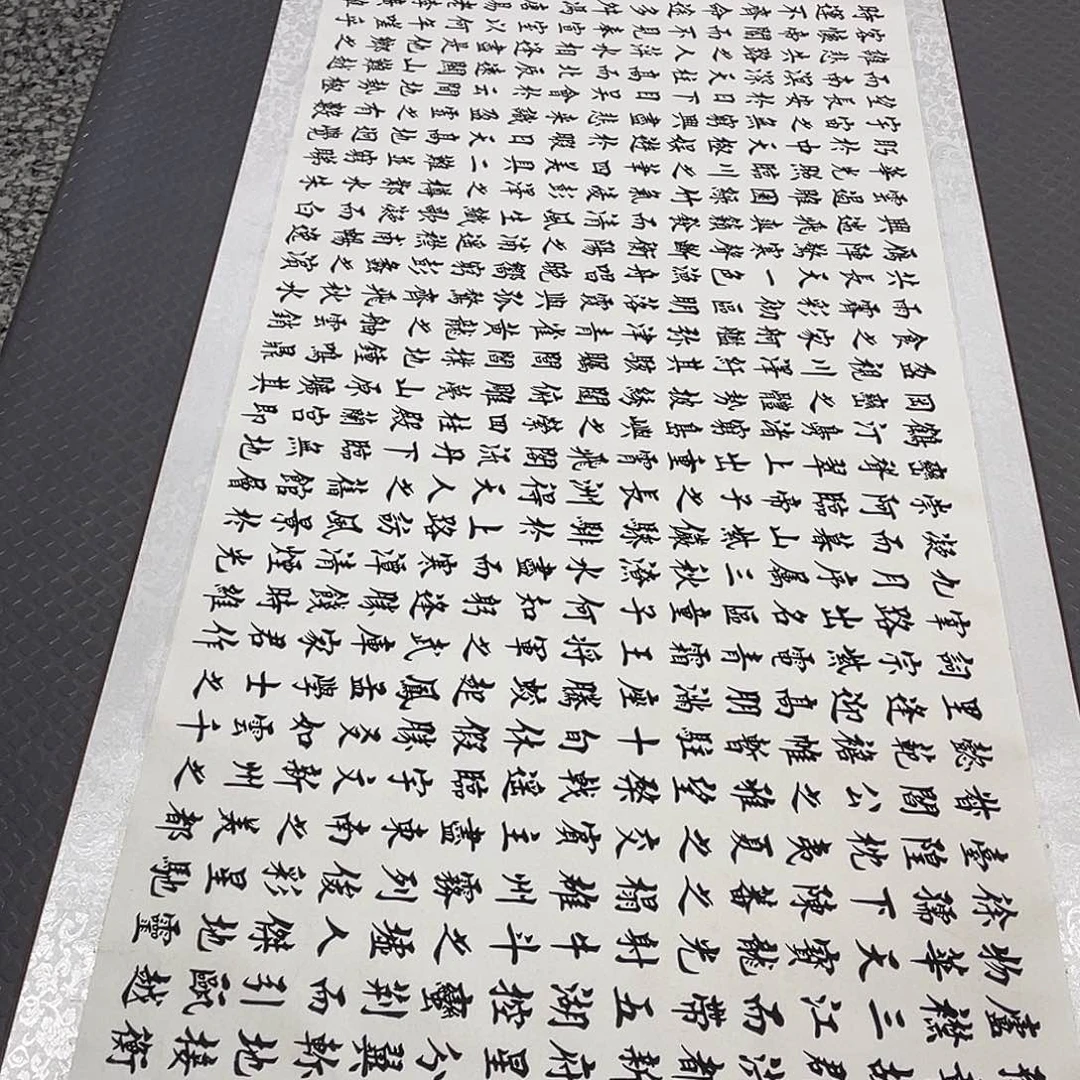 章故郡洪都新府星分翼軫地接衡
廬襟三江而帶五湖控蠻荊而引甌越
物華天寶龍光射牛斗之墟人傑地靈
徐孺下陳蕃之榻雄州霧列俊彩星馳
臺隍枕夷夏之交賓主盡東南之美都
督閻公之雅望棨戟遙臨宇文新州之
懿範襜帷暫駐十旬休假勝友如雲千
里逢迎高朋滿座騰蛟起鳳孟學士之
詞宗紫電青霜王將軍之武庫家君作
宰路出名區童子何知躬逢勝餞時維
九月序属三秋潦水盡而寒潭清煙光
凝而暮山紫儼驂騑於上路訪風景於
崇阿臨帝子之長洲得天人之舊館層
巒聳翠上出重霄飛閣流丹下臨無地
鶴汀鳧渚窮島嶼之縈回桂殿蘭宮即
岡巒之體勢披綉闥俯雕甍山原曠其
盈視川澤紆其駭矚閭閻撲地鐘鳴鼎
食之家舸艦弥津青雀黃龍之舳雲銷
雨霽彩彻區明落霞與孤鶩齊飛秋水
共長天一色漁舟唱晚響窮彭蠡之濱
雁陣驚寒聲斷衡陽之浦遥襟甫暢逸
興遄飛爽籟發而清風生纖歌凝而白
雲遏睢園綠竹氣凌彭澤之樽鄴水朱
華光照臨川之筆四美具二難並窮睇
眄於中天極娛遊於暇日天高地迥覺
宇宙之無窮興盡悲來識盈虛之有數
望長安於日下目吳會於雲間地勢極
而南溟深天柱高而北辰遠關山難越
誰悲失路之人萍水相逢盡是他鄉之
客懷帝閽而不見奉宣室以何年嗟乎
時運不齊命途多舛